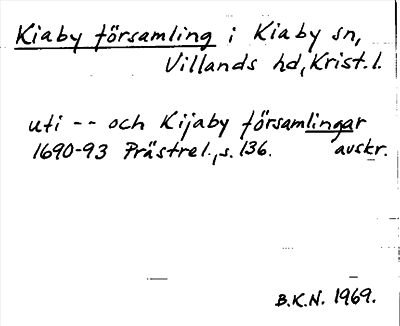 Kiaby församling i Kiaby sn,
Villands hd, Krist. l.
uti -- och Kijaby församlingar
1690-93 Prästrel., s. 136. avskr.
B.K.N. 1969.